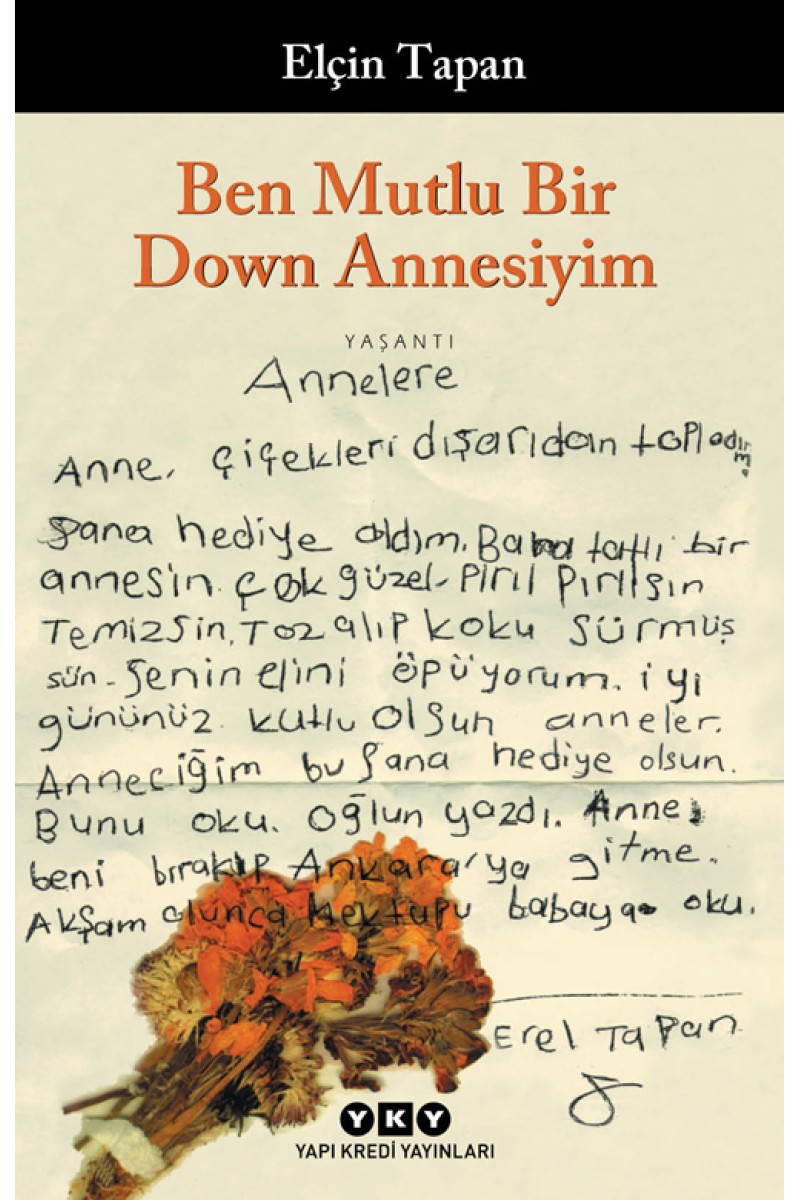 Elçin Tapan
Ben Mutlu Bir
Down Annesiyim
YAŞANTI
Annelere
Anne, çiçekleri dışarıdan topladım.
Sana hediye aldım. Bana tatlı bir
annesin. Çok güzel- Pırıl Pırılsın
Temizsin. Toz alıp koku sürmüş
sün- Senin elini öpüyorum. iyi
gününüz kutlu olsun anneler.
Anneciğim bu sana hediye olsun.
Bunu oku. Oğlun yazdı. Anne
beni bırakıp Ankara'ya gitme.
Akşam olunca Mektupu babaya oku.
Erel Tapan
YKY
YAPI KREDİ YAYINLARI